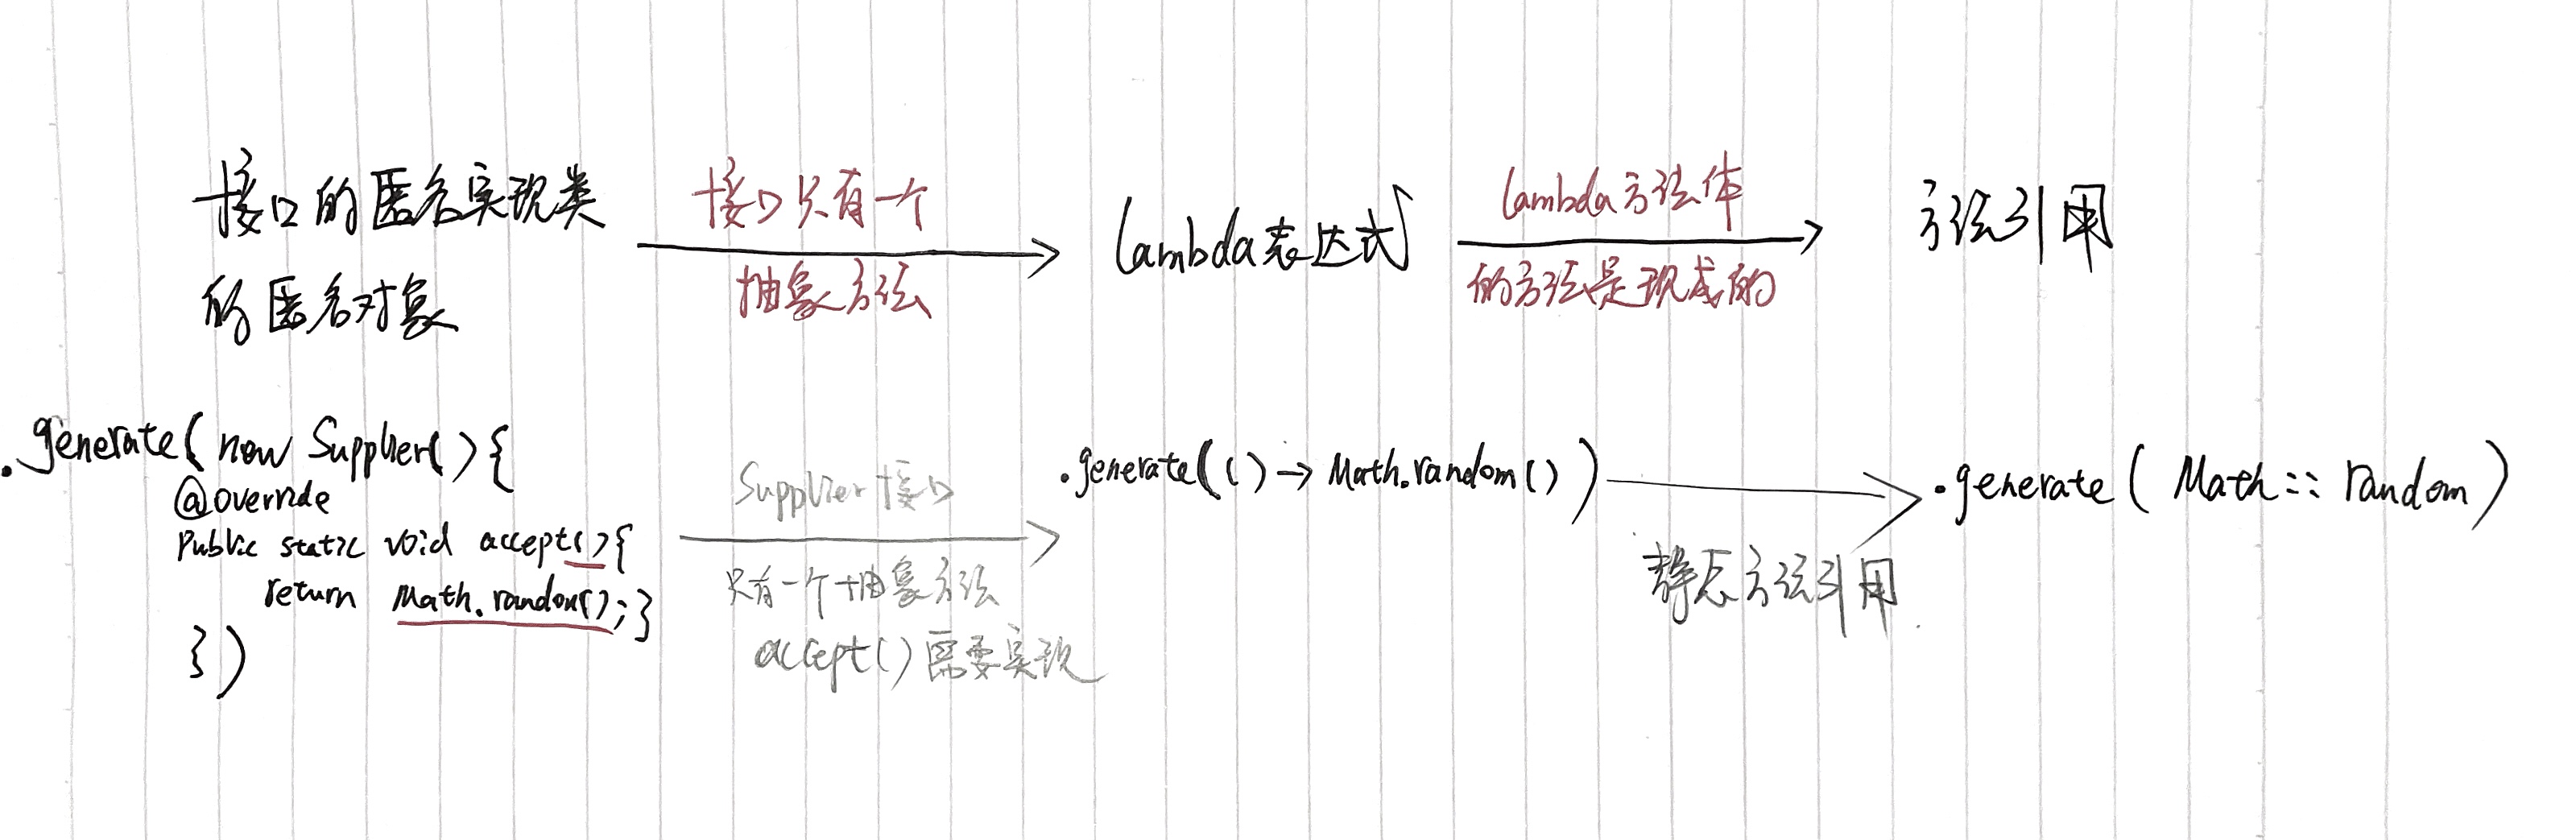 接口的匿名实现类
的匿名对象
接口只有一个
抽象方法
lambda表达式
lambda方法体
的方法是现成的
方法引用
.generate( new Supplier( ) {
@override
public static void accept( ) {
return Math.random( ) ; }
} )
Supplier接口
只有一个抽象方法
accept( ) 需要实现
.generate( ( ) → Math.random ( ) )
静态方法引用
.generate ( Math :: random )